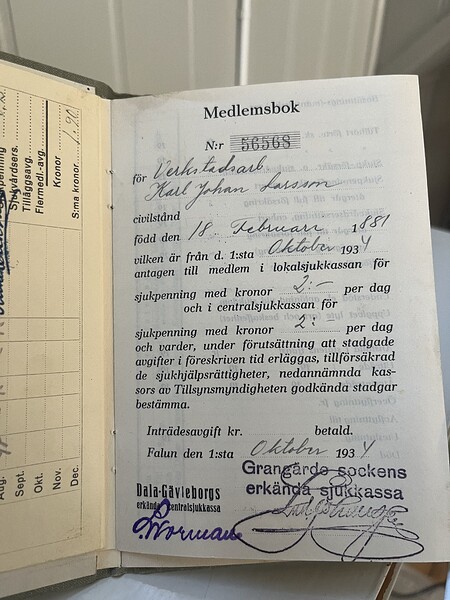 Medlemsbok
N:r 56568
för Verkstadsarb.
Karl Johan Larsson
civilstånd
född den 18. Februari 1881
vilken är från d. 1:sta Oktober 1934
antagen till medlem i lokalsjukkassan för
sjukpenning med kronor 2:- per dag
och i centralsjukkassan för
sjukpenning med kronor 2:- per dag
och varder, under förutsättning att stadgade
avgifter i föreskriven tid erläggas, tillförsäkrad
de sjukhjälpsrättigheter, nedannämnda kas-
sors av Tillsynsmyndigheten godkända stadgar
bestämma.
Inträdesavgift kr. betald.
Falun den 1:sta Oktober 1934
Grangärde sockens
erkända sjukkassa
Dala-Gävleborgs
erkända centralsjukkassa
Tilläggsavg.
Flermedl.-avg.
Kronor
S:ma kronor
Aug.
Sept.
Okt.
Nov.
Dec.